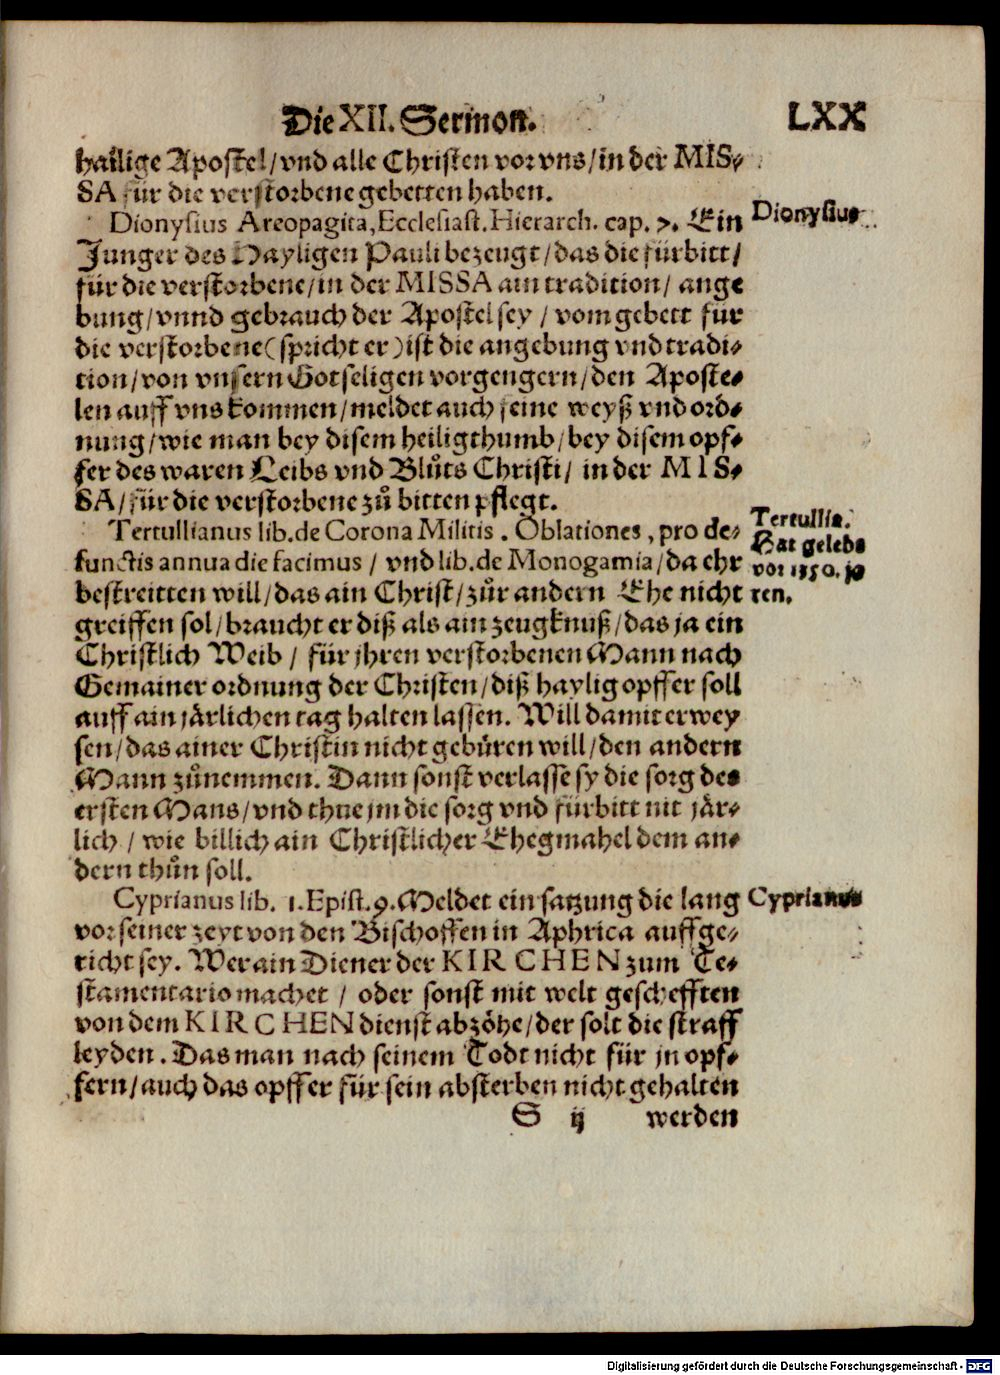 Die XII. Sermon. LXX
hailige Apostel/vnd alle Christen vor vns/in der MIS-
SA für die verstorbene gebetten haben.
Dionysius Areopagita, Ecclesiast. Hierarch. cap. 7. Ein
Dionysius
Junger des Hayligen Pauli bezeugt/das die fürbitt/
für die verstorbene/in der MISSA ain tradition/ ange
bung/vnnd gebrauch der Apostel sey / vom gebett für
die verstorbene (spricht er) ist die angebung vnd tradi-
tion/von vnsern Gotseligen vorgengern/den Aposte-
len auff vns kommen/meldet auch seine weyß vnd ord-
nung/wie man bey disem heiligthumb/bey disem opf-
fer des waren Leibs vnd Blůts Christi/ in der MIS-
SA/für die verstorbene zů bitten pflegt.
Tertullianus lib. de Corona Militis. Oblationes, pro de-
functis annua die facimus / vnd lib. de Monogamia/da ehr
bestreitten will/das ain Christ/zůr andern Ehe nicht
Tertullia.
Hat gelebs
vor 1350. ja
ren.
greiffen sol/braucht er diß als ain zeugknuß/das ja ein
Christlich Weib / für jhren verstorbenen Mann nach
Gemainer ordnung der Christen/diß haylig opffer soll
auff ain järlichen tag halten lassen. Will damit erwey
sen/das ainer Christin nicht gebüren will/den andern
Mann zůnemmen. Dann sonst verlasse sy die sorg des
ersten Mans/vnd thue jm die sorg vnd fürbitt nit jär-
lich / wie billich ain Christlicher Ehegmahel dem an-
dern thůn soll.
Cyprianus lib. 1. Epist. 9. Meldet ein satzung die lang
Cyprianus
vor seiner zeyt von den Bischoffen in Aphrica auffge-
richt sey. Wer ain Diener der KIRCHEN zum Te-
stamentario machet / oder sonst mit welt geschefften
von dem KIRCHEN dienst abzöhe/der solt die straff
leyden. Das man nach seinem Todt nicht für jn opf-
fern/auch das opffer für sein absterben nicht gehalten
S ij werden
Digitalisierung gefördert durch die Deutsche Forschungsgemeinschaft - DFG